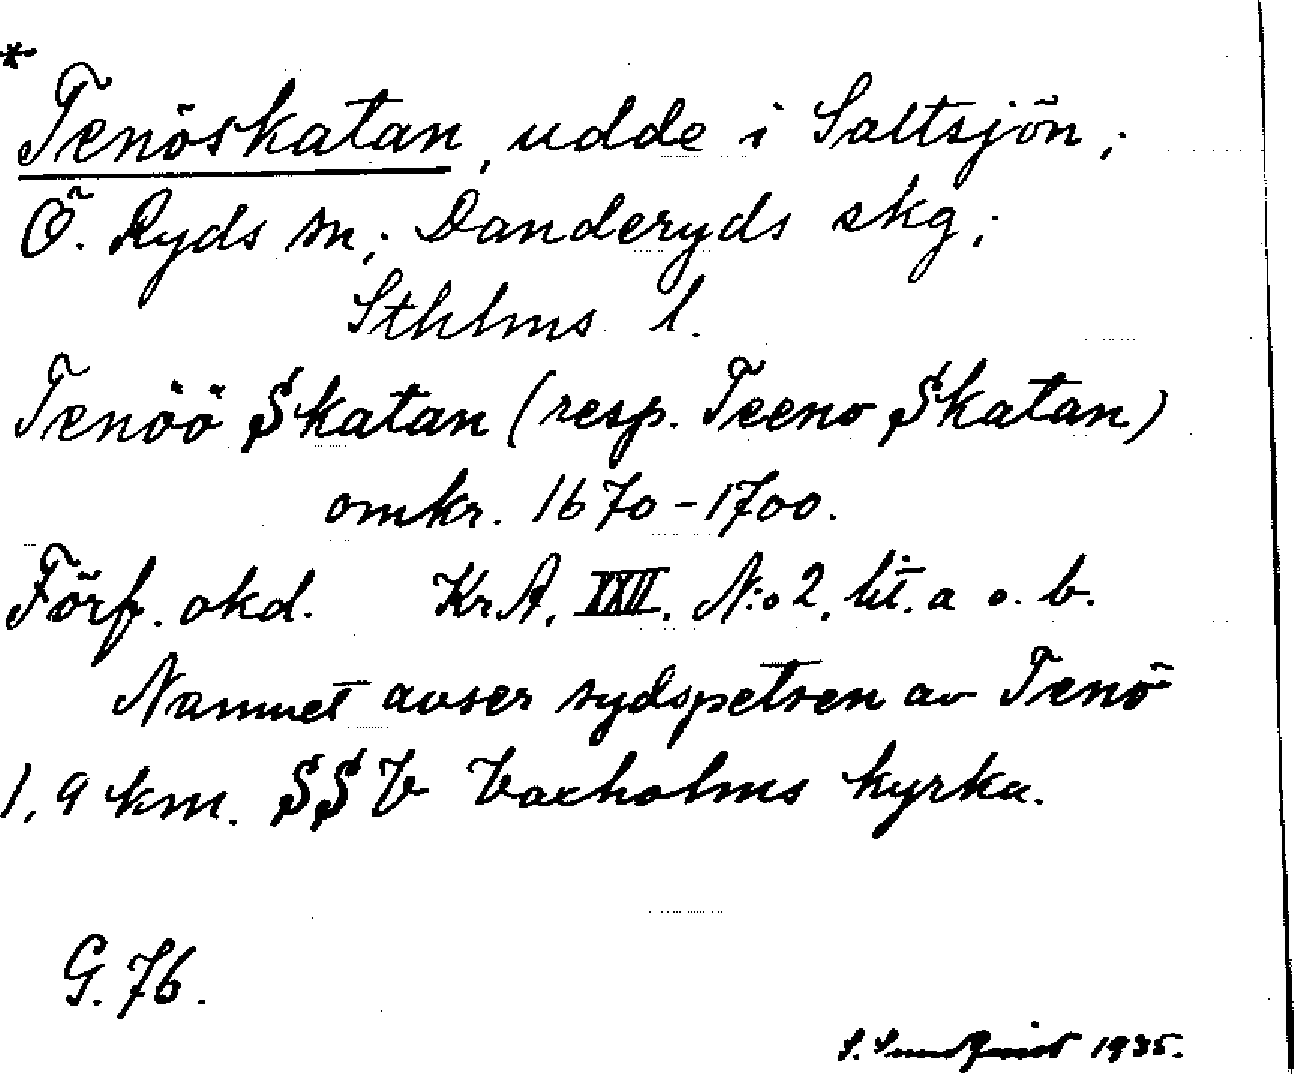 *
Tenöskatan, udde i Saltsjön;
Ö. Ryds sn; Danderyds skg;
Sthlms l.
Tenöö Skatan (resp. Teeno Skatan)
omkr. 1670-1700.
Förf. okd. KrA. XXII. N:o 2. lit. a o. b.
Namnet avser sydspetsen av Tenö
1,9 km. SSV Vaxholms kyrka.
G. 76.
S. Sundquist 1935.